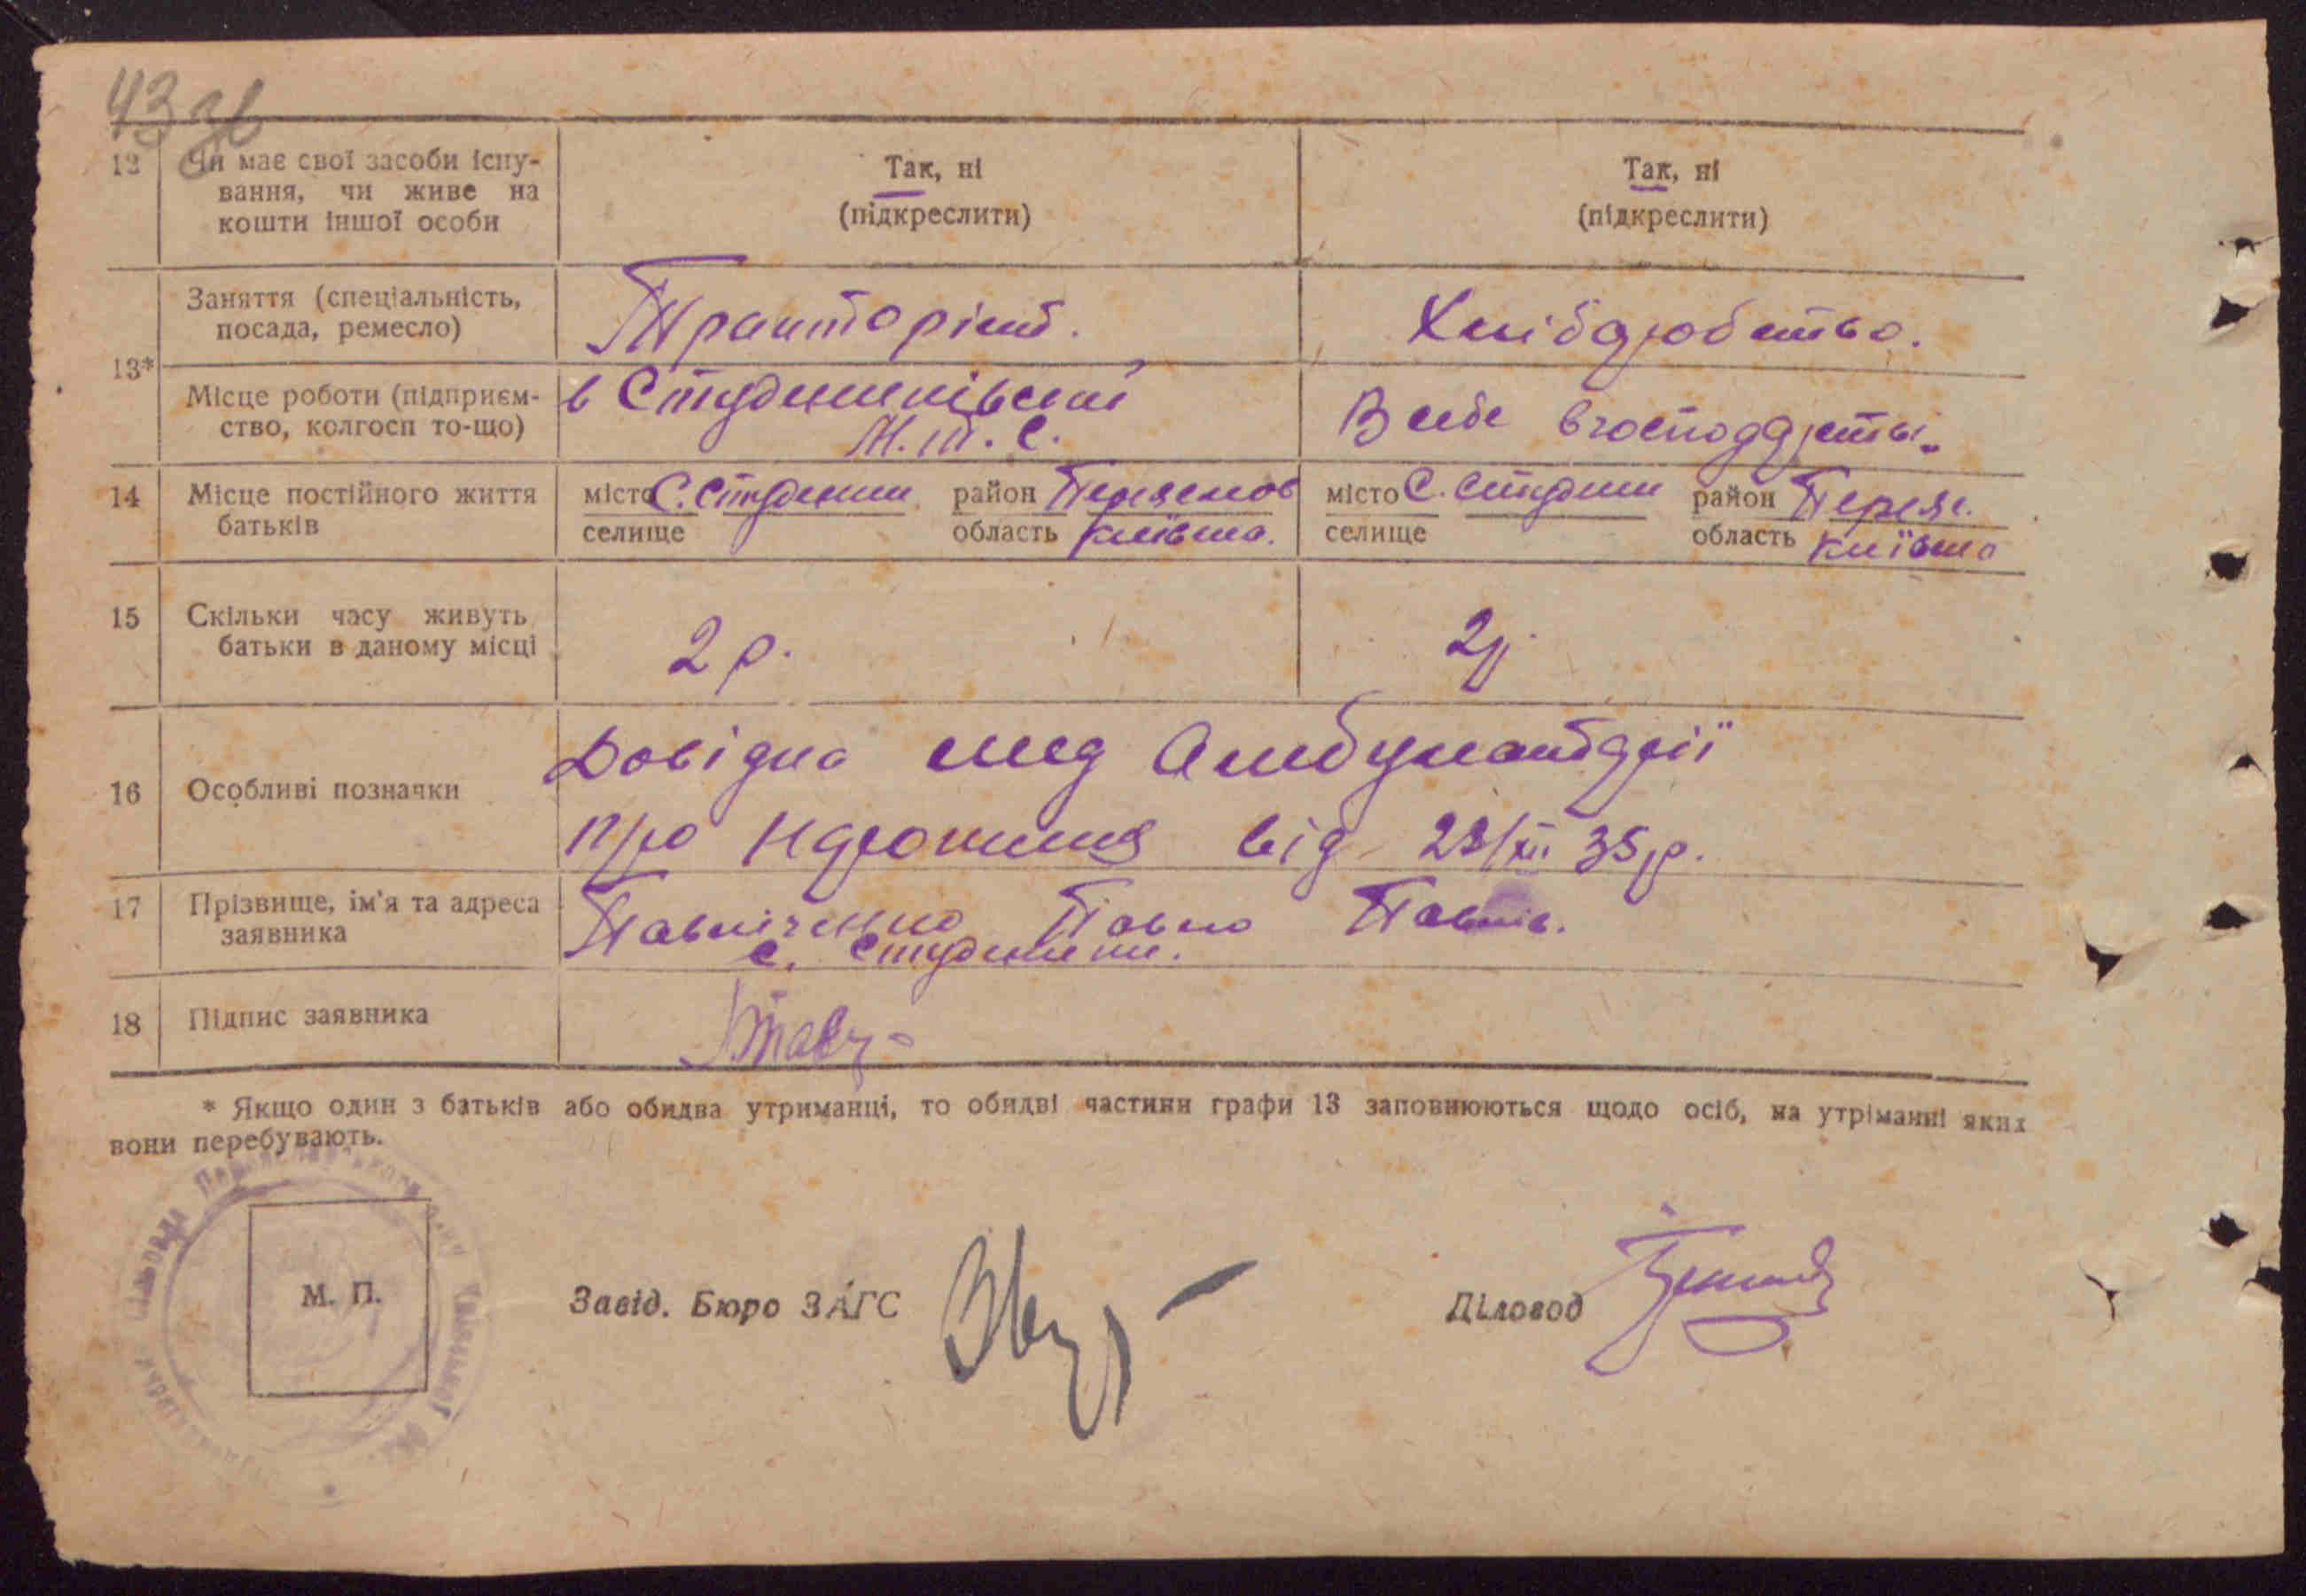 43 зв
12 Чи має свої засоби існу-
вання, чи живе на
кошти іншої особи
Так, ні
(підкреслити)
Так, ні
(підкреслити)
13*
Заняття (спеціальність,
посада, ремесло)
Тракторіст.
Хліборобство.
Місце роботи (підприєм-
ство, колгосп то-що)
в Студениківській
М.т.с.
В себе в господарстві.
14 Місце постійного життя
батьків
місто С. Студеники район Переяслов
селище область Київська.
місто С. Студеники район Переясл.
селище область Київська
15 Скільки часу живуть
батьки в даному місці
2 р.
2 р.
16 Особливі позначки
Довідка мед Амбулаторії
про народження від 28/XII 35 р.
17 Прізвище, ім'я та адреса
заявника
Павліченко Павло Павлів.
с. Студеники.
18 Підпис заявника
* Якщо один з батьків або обидва утриманці, то обидві частини графи 13 заповнюються щодо осіб, на утріманні яких
вони перебувають.
М. П.
Завід. Бюро ЗАГС
Діловод